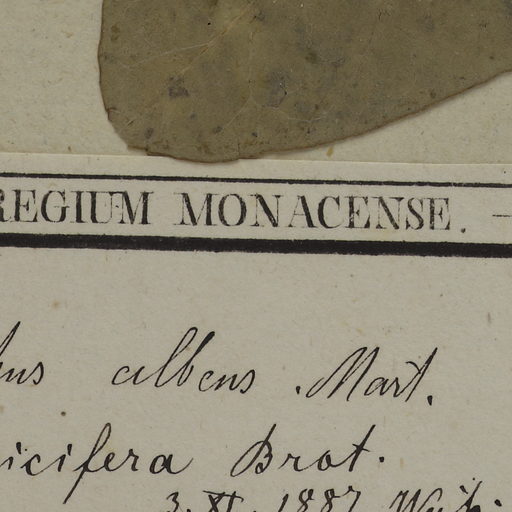 REGIUM MONACENSE. —
hus albens . Mart.
icifera Brot.
3. XI. 1887